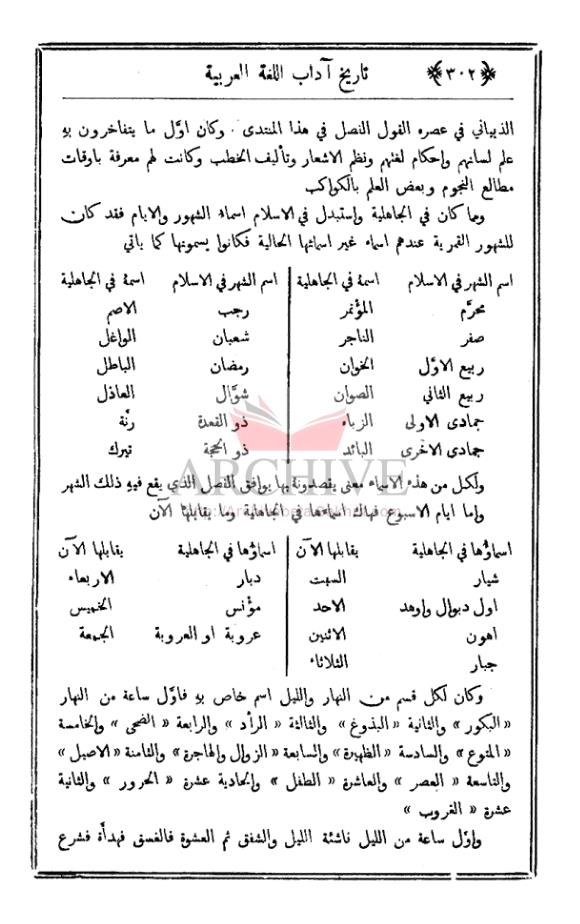 ﴿٣٠٢﴾ تاريخ آداب اللغة العربية
الذبياني في عصره القول الفصل في هذا المنتدى . وكان اوّل ما يتفاخرون به
علم لسانهم وإحكام لغتهم ونظم الاشعار وتأليف الخطب وكانت لهم معرفة باوقات
مطالع النجوم وبعض العلم بالكواكب
وما كان في الجاهلية واستبدل في الاسلام اسماء الشهور والايام فقد كان
للشهور القمرية عندهم اسماء غير اسمائها الحالية فكانوا يسمونها كما ياتي
اسم الشهر في الاسلام اسمهُ في الجاهلية اسم الشهر في الاسلام اسمهُ في الجاهلية
محرَّم المؤتمر رجب الاصم
صفر الناجر شعبان الواغل
ربيع الاوَّل الخوان رمضان الباطل
ربيع الثاني الصوان شوَّال العاذل
جمادى الاولى الزباء ذو القعدة رنَّة
جمادى الاخرى البائد ذو الحجة تبرك
ولكل من هذه الاسماء معنى يقصدونه بها يوافق الفصل الذي يقع فيهِ ذلك الشهر
واما ايام الاسبوع فهاك اسماءها في الجاهلية وما يقابلها الآن
اسماؤها في الجاهلية يقابلها الآن اسماؤها في الجاهلية يقابلها الآن
شيار السبت دبار الاربعاء
اول ديوال واوهد الاحد مؤنس الخميس
اهون الاثنين عروبة او العروبة الجمعة
جبار الثلاثاء
وكان لكل قسم من النهار والليل اسم خاص بهِ فاوَّل ساعة من النهار
« البكور » والثانية « البذوغ » والثالثة « الرأد » والرابعة « الضحى » والخامسة
« المتوع » والسادسة « الظهيرة » والسابعة « الزوال والهاجرة » والثامنة « الاصيل »
والتاسعة « العصر » والعاشرة « الطفل » والحادية عشرة « الحرور » والثانية
عشرة « الغروب »
واوّل ساعة من الليل ناشئة الليل والشفق ثم العشوة فالغسق فهدأة فشرع
ARCHIVE